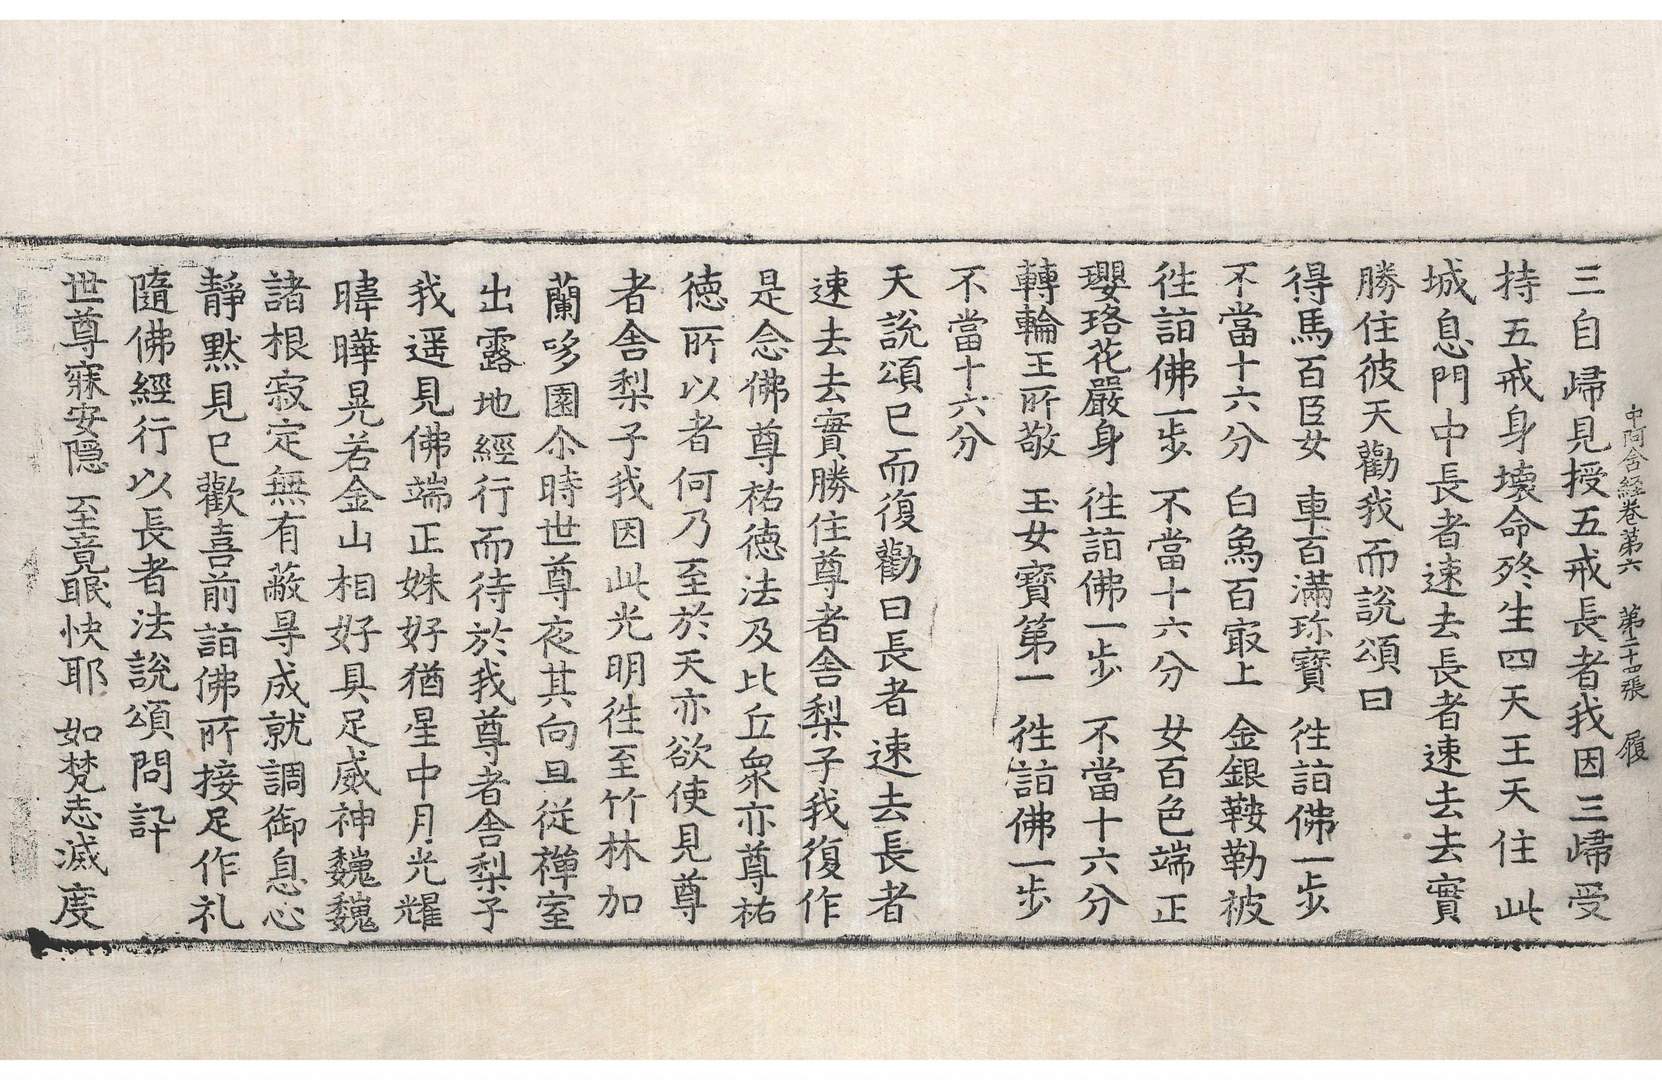 中阿含経卷第六　第二十四張　履
三自歸見授五戒長者我因三歸受
持五戒身壞命終生四天王天住此
城息門中長者速去長者速去去實
勝住彼天勸我而說頌曰
得馬百臣女　車百滿珎寶　徃詣佛一步
不當十六分　白象百㝡上　金銀鞍勒被
徃詣佛一步　不當十六分　女百色端正
瓔珞花嚴身　徃詣佛一步　不當十六分
轉輪王所敬　玉女寶第一　徃詣佛一步
不當十六分
天說頌已而復勸曰長者速去長者
速去去實勝住尊者舍梨子我復作
是念佛尊祐德法及比丘衆亦尊祐
德所以者何乃至於天亦欲使見尊
者舍梨子我因此光明徃至竹林加
蘭哆園尒時世尊夜其向旦従禪室
出露地經行而待於我尊者舍梨子
我遥見佛端正姝好猶星中月光耀
暐曄晃若金山相好具足威神巍巍
諸根寂定無有蔽㝵成就調御息心
靜默見已歡喜前詣佛所接足作礼
隨佛經行以長者法說頌問訊
世尊寐安隱　至竟眠快耶　如梵志滅度